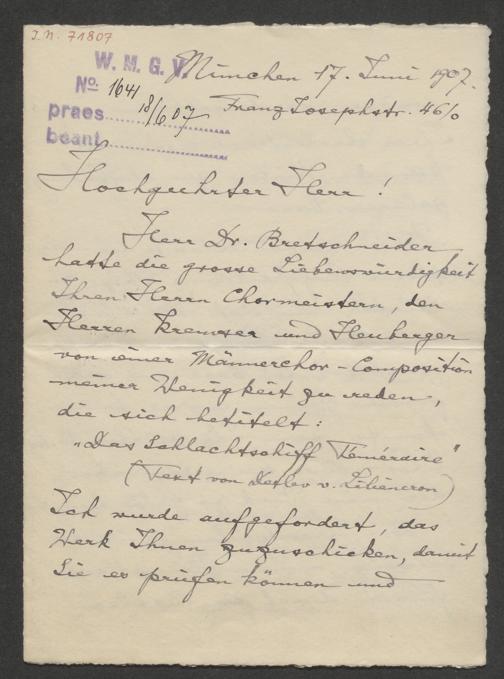 I. N. 71807
W. M. G. V.
No. 1641
praes. 18/6 07
beant.
München 17. Juni 1907.
Franz Josephstr. 46/0
Hochgeehrter Herr!
Herr Dr. Bretschneider
hatte die grosse Liebenswürdigkeit
Ihren Herrn Chormeistern, den
Herren Kremser und Heuberger
von einer Männerchor-Composition
meiner Wenigkeit zu reden,
die sich betitelt:
"Das Schlachtschiff Téméraire"
(Text von Detlev v. Liliencron)
Ich wurde aufgefordert, das
Werk Ihnen zuzuschicken, damit
Sie es prüfen können und